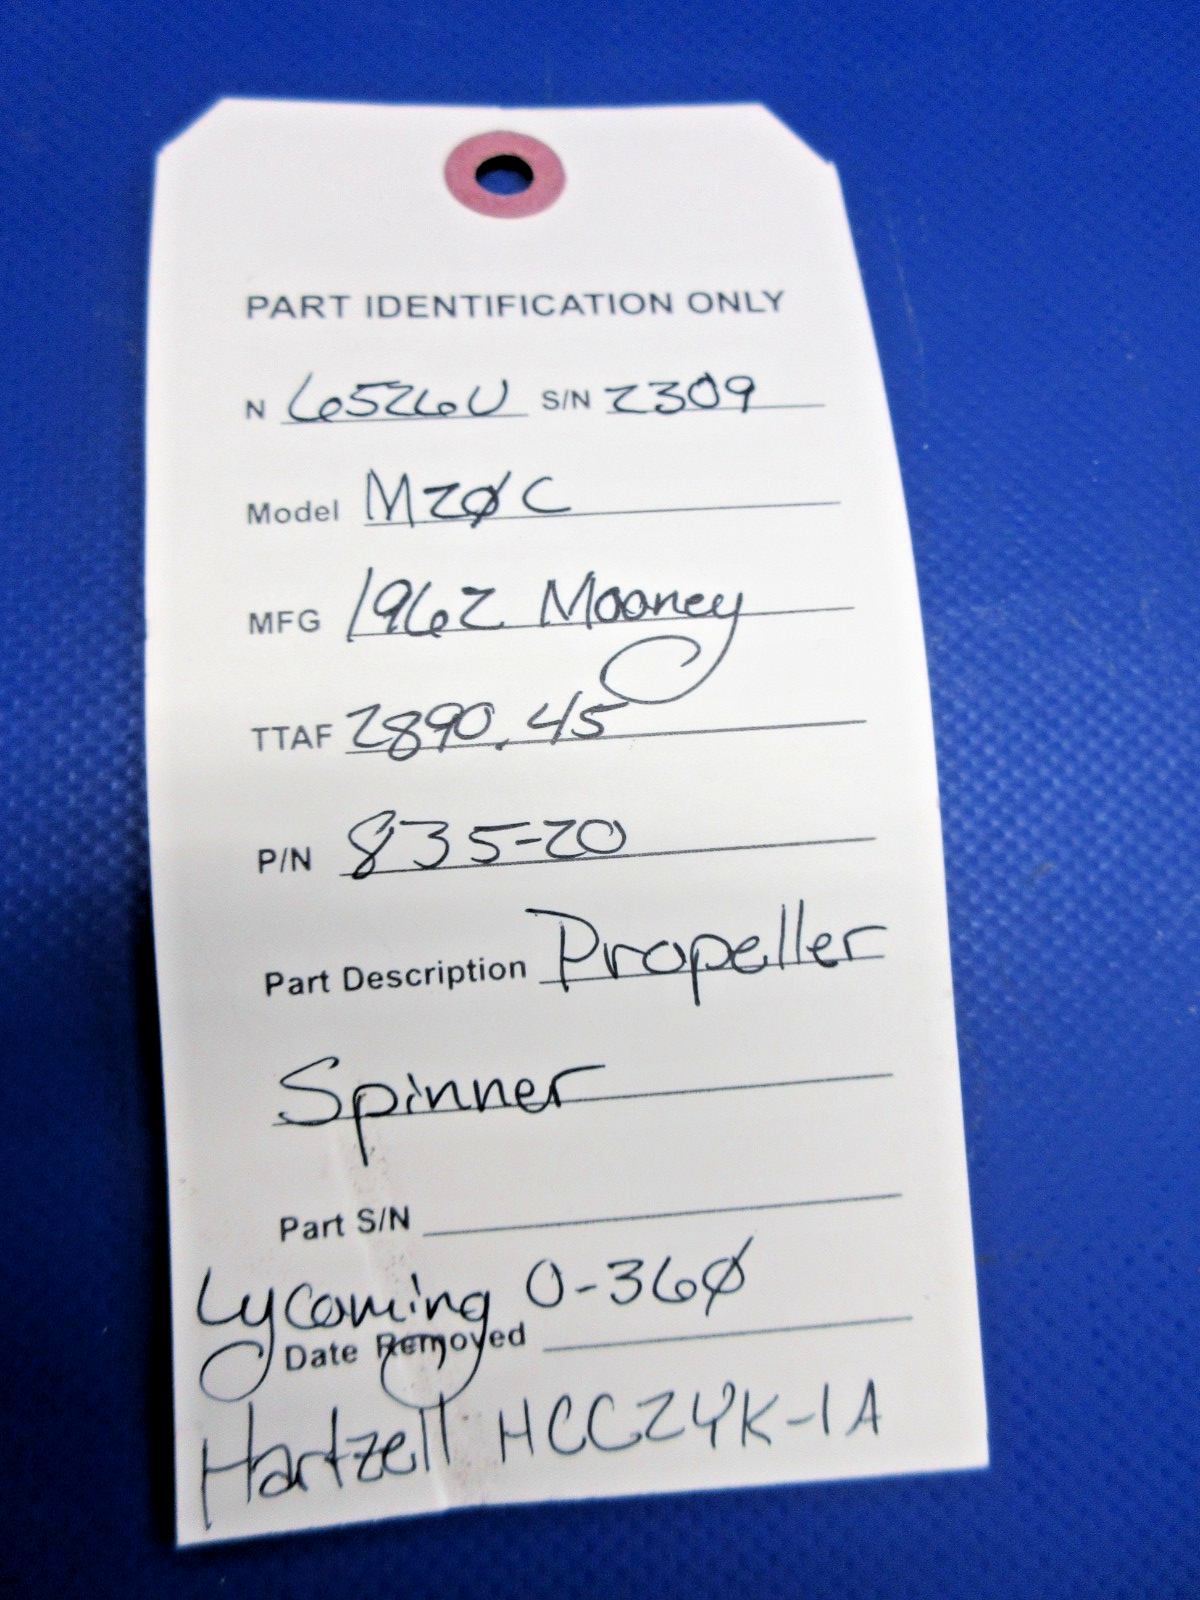 PART IDENTIFICATION ONLY
N 6526U S/N 2309
Model M20C
MFG 1962 Mooney
TTAF 2890.45
P/N 835-20
Part Description Propeller
Spinner
Part S/N
Lycoming O-360
Date Removed
Hartzell HCC2YK-1A